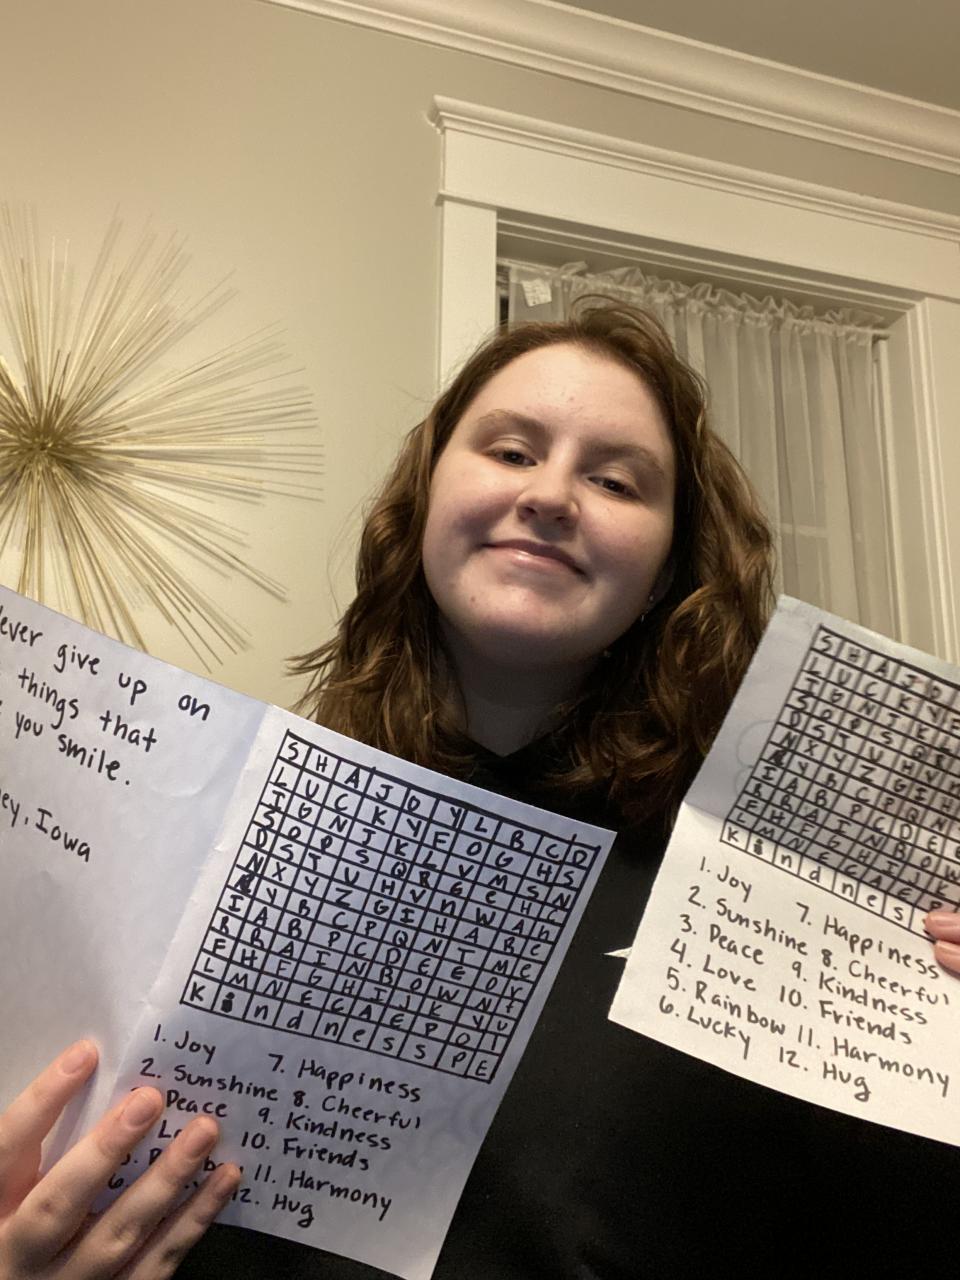 give up on
things that
you smile.
Iowa
S H A J D Y L B C D
L U C K Y F O G H S
I G N J K L V M S N
S O P S Q R G e H C
D S T U H V n W A h
N X Y Z G I H A R e
Y B C P Q N T M e
I A B P C D E E O r
R R A I N B O W N f
F H F G H I J K Y u
L M N E C A E P O
K i n d n e s s P E
1. Joy 7. Happiness
2. Sunshine 8. Cheerful
Peace 9. Kindness
10. Friends
11. Harmony
6. 12. Hug
S H A J D
L U C K Y F
I G N J K
S O P S Q
D S T U H V
N X Y Z G I H
Y B C P Q N
I A B P C D E
R R A I N B O W
F H F G H I J K
L M N E C A E
K i n d n e s
1. Joy 7. Happiness
2. Sunshine 8. Cheerful
3. Peace 9. Kindness
4. Love 10. Friends
5. Rainbow 11. Harmony
6. Lucky 12. Hug